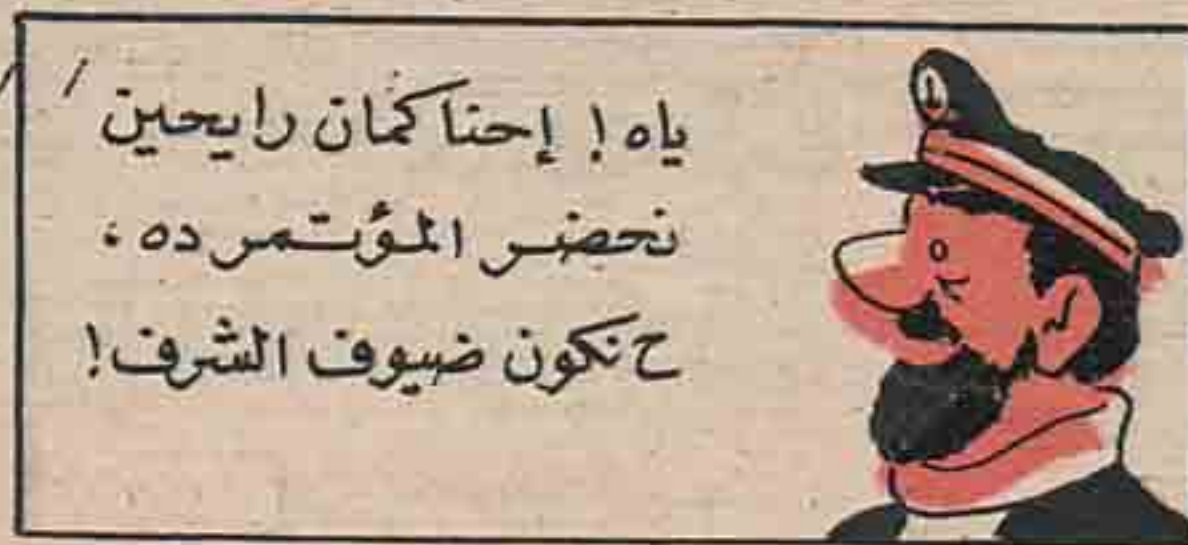 ياه ! إحنا كمان رايحين
نحضر المؤتمر ده ،
ح نكون ضيوف الشرف !